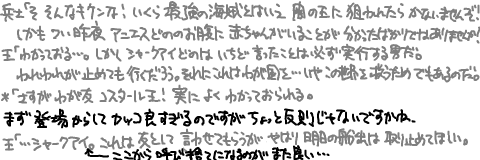 兵士「そ そんなキケンな! いくら 最強の海賊とはいえ 風の玉に 狙われたら かないませんぞ!
しかも つい昨夜 アニエスどのの お腹に 赤ちゃんがいることが 分かったばかりではありませんか!
王「わかっておる…。しかし シャークアイどのは いちど 言ったことは必ず 実行する男だ。
われわれが止めても 行くだろう。それに これは わが国を… いや この地を 救うためでもあるのだ。
*「さすがわが友 コスタール王! 実によく わかっておられる。
まず登場からして カッコ良すぎるのですが ちょっと反則じゃないですかね
王「…シャークアイ。これは 友として 言わせてもらうが やはり 明日の船出は 取り止めてほしい。
← ここから 呼び捨てになるのが また良い…